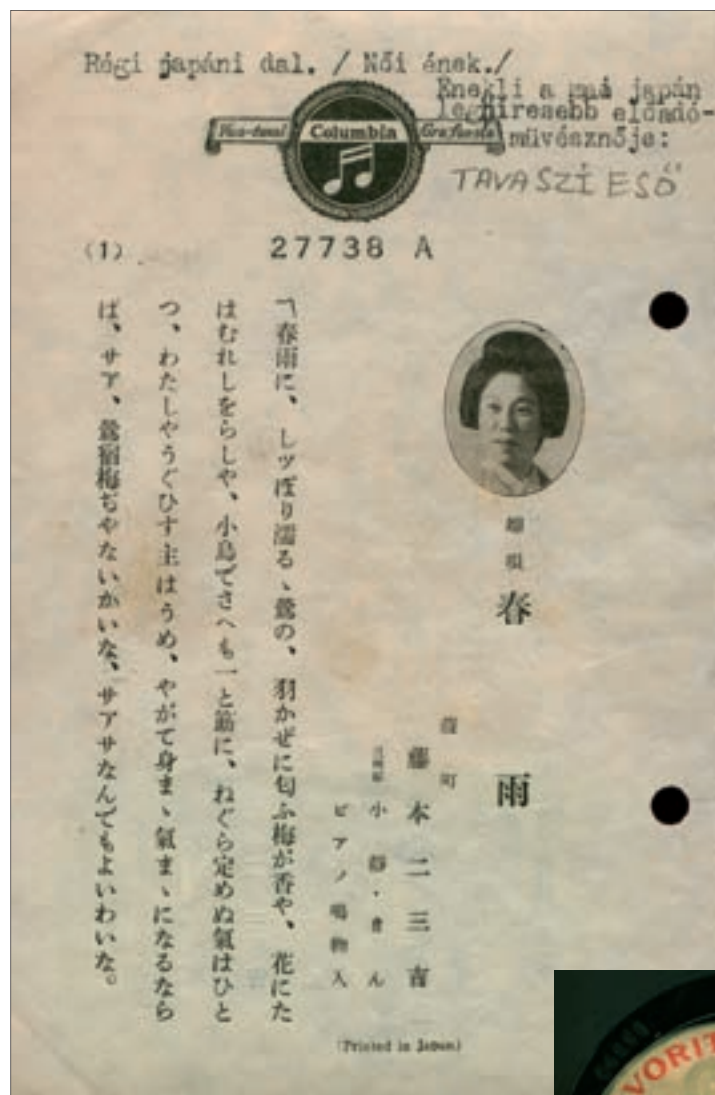 Régi japáni dal. / Női ének./
Énekli a mai japán
leghiresebb előadó-
művésznője:
TAVASZI ESŐ
Viva-tonal Columbia Grafonola
(1)
27738 A
端唄
春雨
葭町
藤本二三吉
三味線 小靜・きん
ピアノ鳴物入
「春雨に、しッぽり濡るゝ鶯の、羽かぜに匂ふ梅が香や、花にた
はむれしをらしや、小鳥でさへも一と筋に、ねぐら定めぬ氣はひと
つ、わたしやうぐひす主はうめ、やがて身まゝ氣まゝになるなら
ば、サア、鶯宿梅ぢやないかいな、サアサなんでもよいわいな。
(Printed in Japan)
VORIT